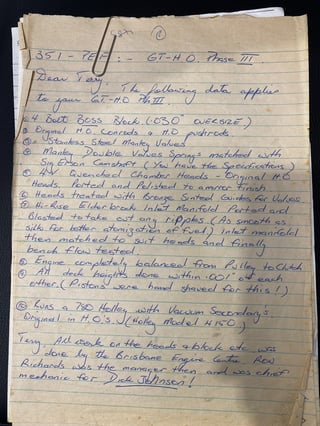 351 - :- GT-H.O. Phase III
Dear Terry,
The following data applies
to your GT-H.O PH III.
① 4 Bolt Boss Block (.030" OVERSIZE)
② Original H.O. Conrods & H.O pushrods.
③ Stainless Steel Manley Valves
④ Manley Double Valve Springs matched with
Sig Erson Camshaft (You Have the Specifications)
⑤ 4V Quenched Chamber Heads - Original H.O
Heads. Ported and Polished to a mirror finish
⑥ Heads treated with Bronze Sinted Guides for Valves
⑦ Hi-Rise Elderbrock Inlet Manifold Ported and
Blasted to take out any ripples (As smooth as
silk for better atomization of fuel) Inlet manifold
then matched to suit heads and finally
bench flow tested.
⑧ Engine completely balanced from Pulley to Clutch
⑨ All deck heights done within .001" of each
other (Pistons were hand shaved for this!)
⑩ Runs a 780 Holley with Vacuum Secondarys
Original in H.O.S. (Holley Model 4150)
Terry, All work on the heads & block etc was
done by the Brisbane Engine Centre. Ron
Richards was the manager then and was chief
mechanic for Dick Johnson!